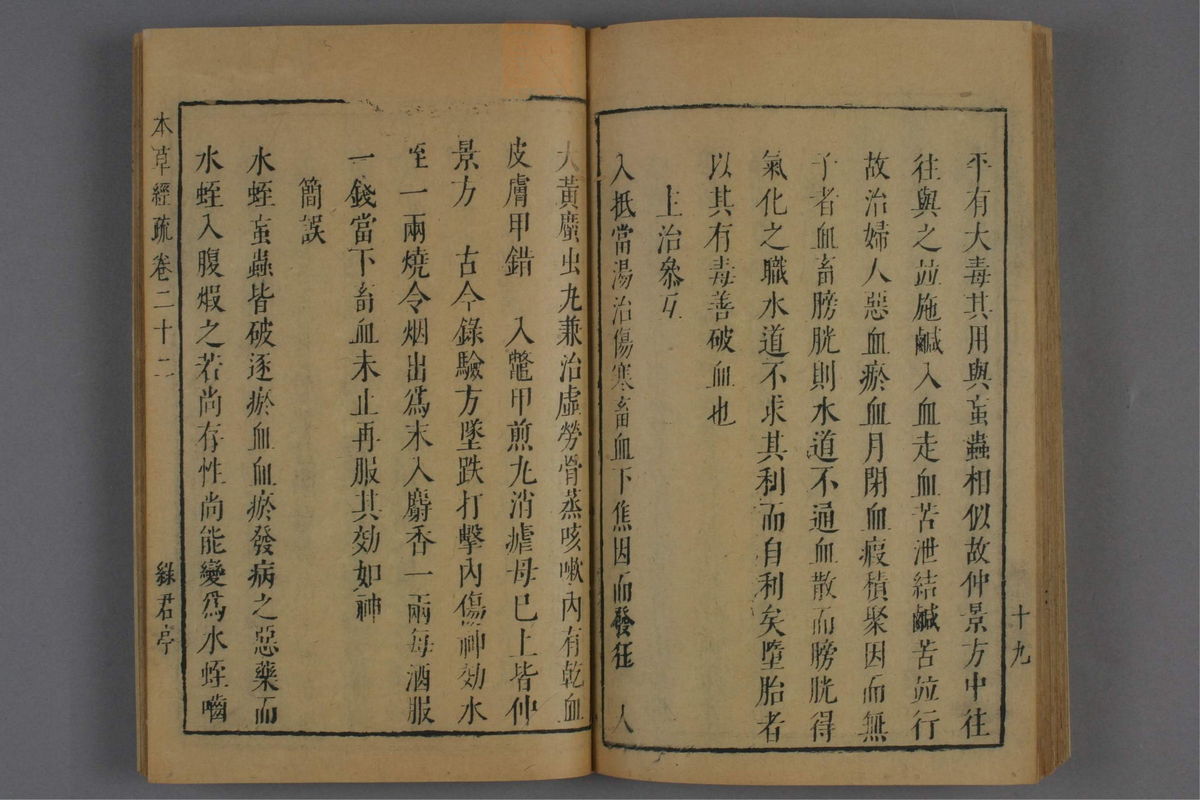 平有大毒其用與䖟蟲相似故仲景方中往
往與之竝施鹹入血走血苦泄結鹹苦竝行
故治婦人惡血瘀血月閉血瘕積聚因而無
子者血畜膀胱則水道不通血散而膀胱得
氣化之職水道不求其利而自利矣墮胎者
以其有毒善破血也
主治叅互
入抵當湯治傷寒畜血下焦因而發狂 人
十九
大黃䗪虫丸兼治虛勞骨蒸咳嗽內有乾血
皮膚甲錯 入鼈甲煎丸消瘧母已上皆仲
景方 古今錄驗方墜跌打擊內傷神効水
蛭一兩燒令烟出爲末入麝香一兩每酒服
一錢當下畜血未止再服其効如神
簡誤
水蛭䖟蟲皆破逐瘀血血瘀發病之惡藥而
水蛭入腹煆之若尚存性尚能變爲水蛭嚙
本草經疏卷二十二
綠君亭